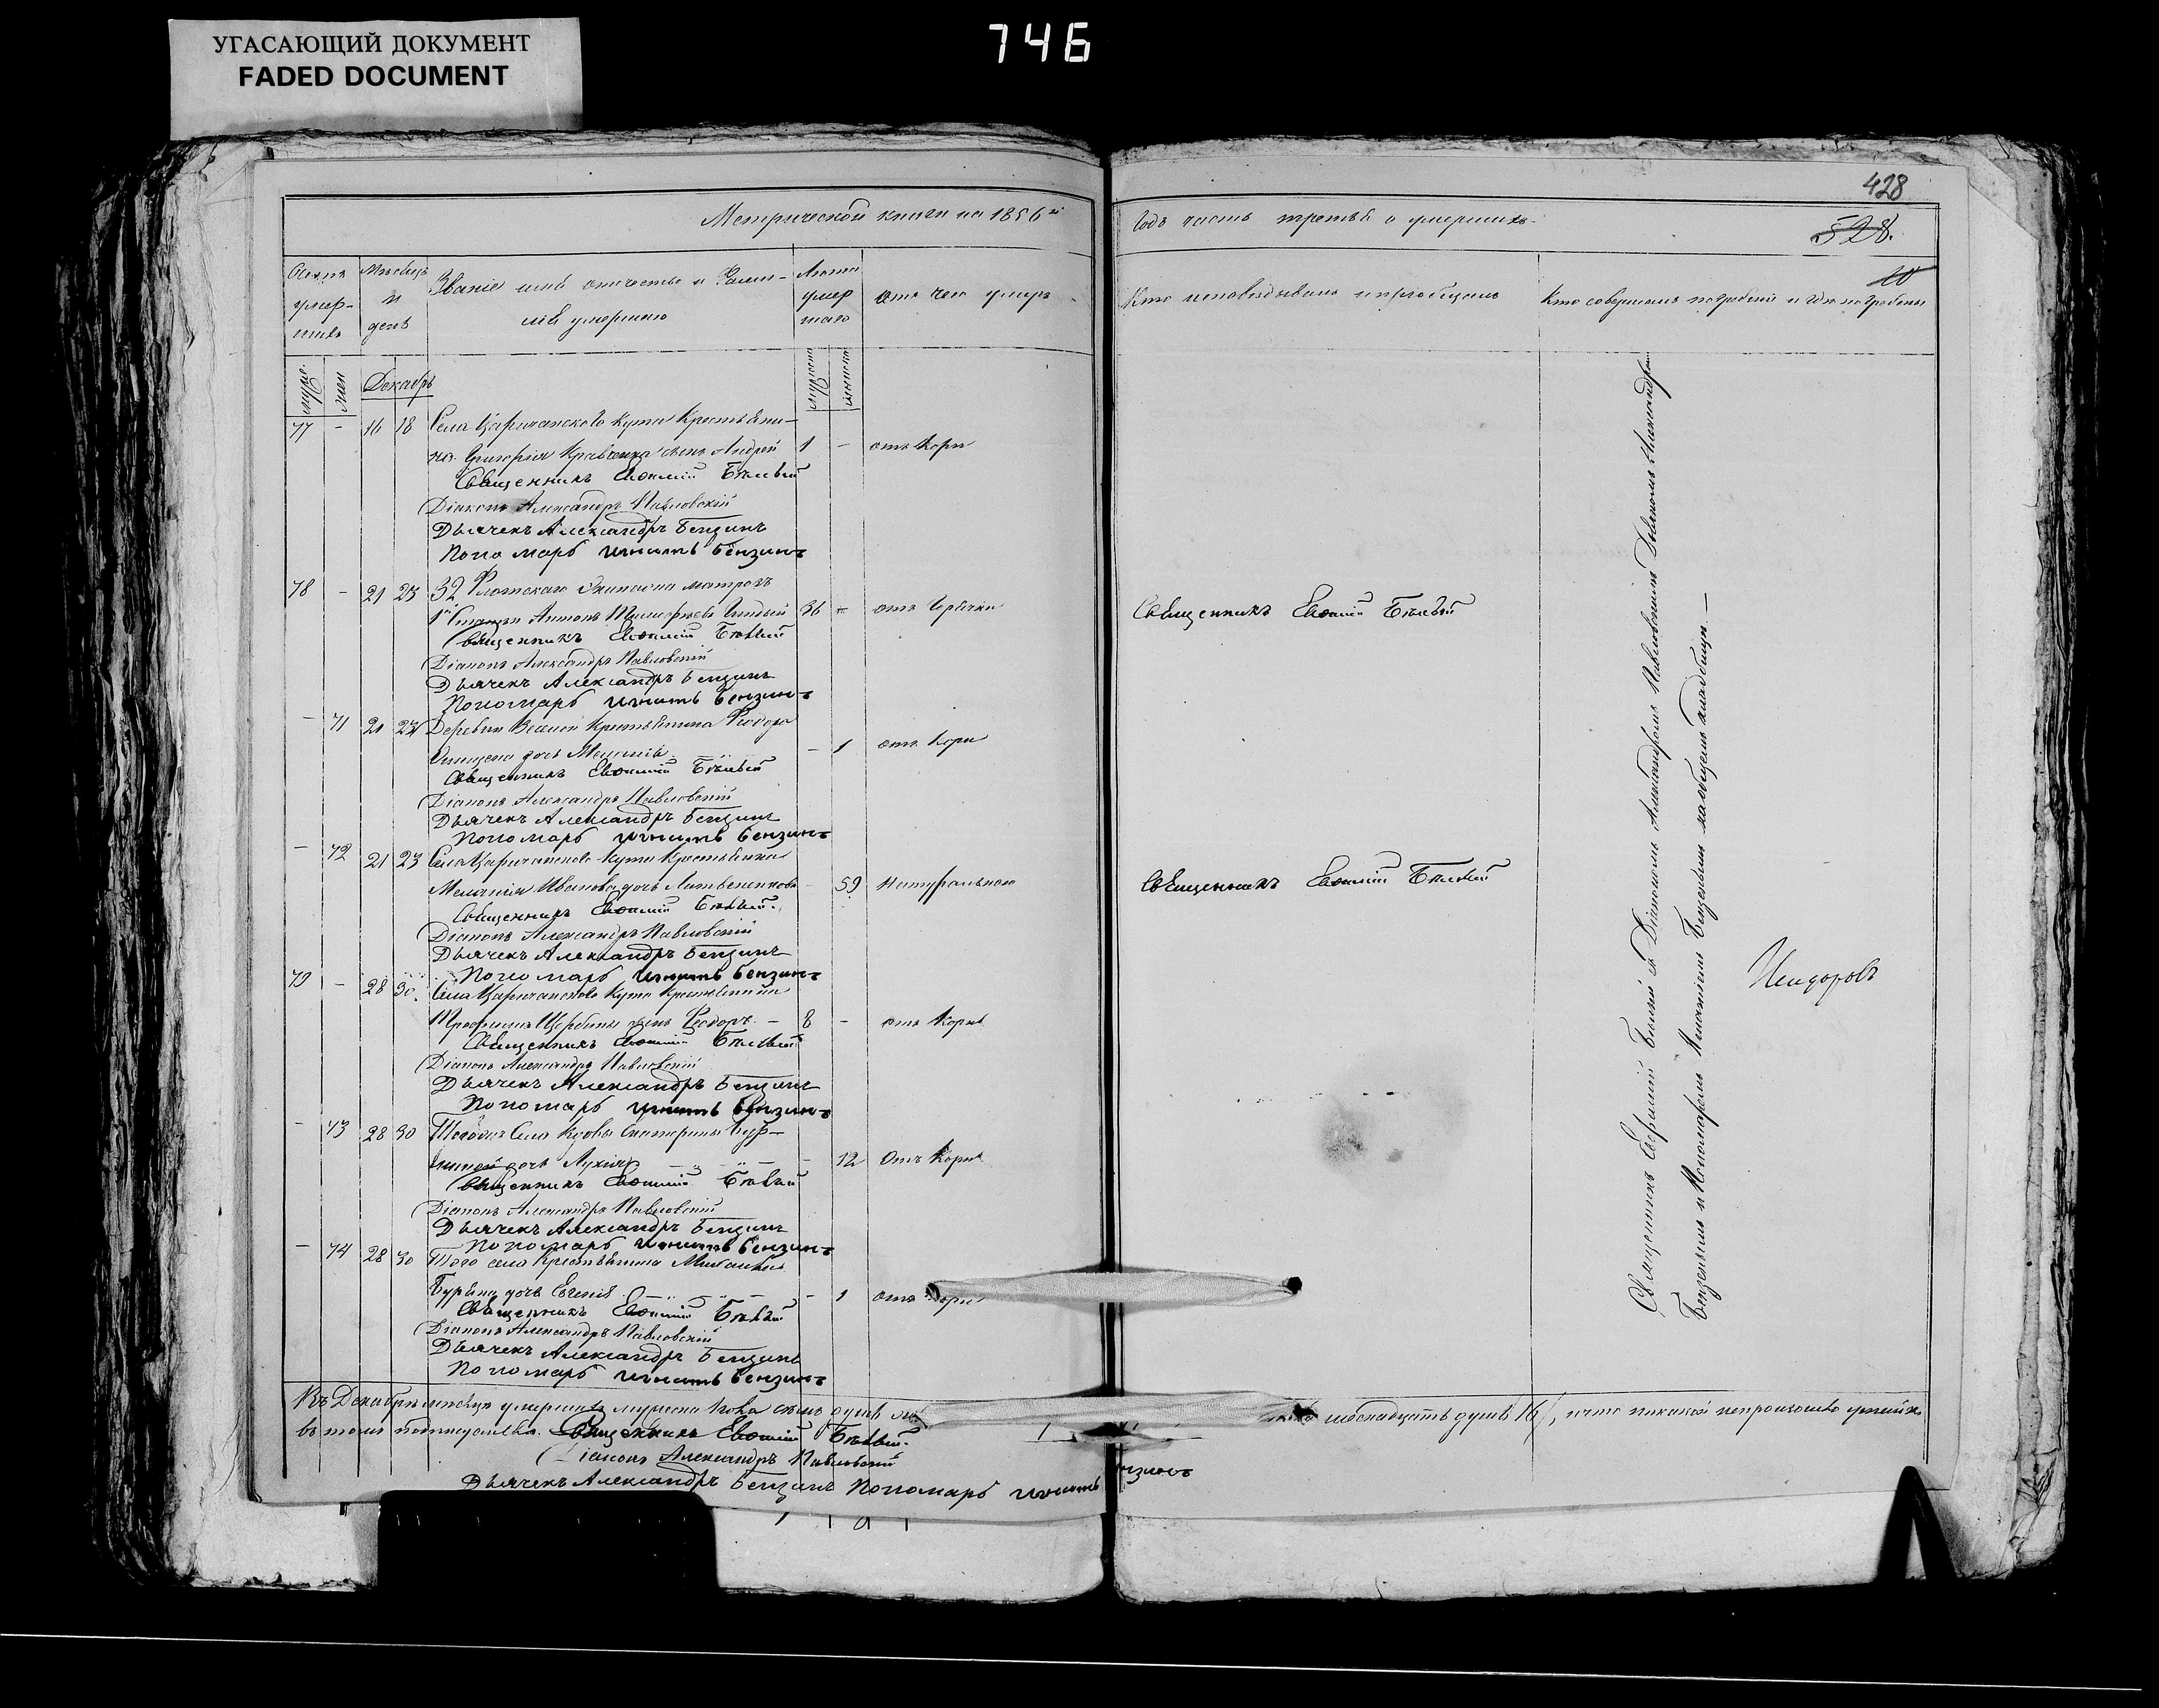 УГАСАЮЩИЙ ДОКУМЕНТ
FADED DOCUMENT
746
428
528.
Метрической книги на 1856й
Годъ часть третья о умершихъ.
Мѣсяцъ и день
Званіе имя отчество и Фами-
лія умершаго
Лета умер шаго
отъ чего умеръ
Кто исповѣдывалъ и пріобщалъ
Кто совершалъ погребеніе и где погребены
Декабрь
77 - 16 18 Села Царичанского Кута Крестьяни-
на Григорія Кравченка сынъ Андрей 1 - отъ Кори
Священникъ Евѳимій Бѣлый
Діаконъ Александръ Павловскій
Дьячекъ Александръ Бензинъ
Пономарь Игнатъ Бензинъ
78 - 21 23 32 Флотскаго Экипажа матрозъ
Антонъ 36 - отъ Горячки
Священникъ Евѳимій Бѣлый
Священникъ Евѳимій Бѣлый
Діаконъ Александръ Павловскій
Дьячекъ Александръ Бензинъ
Пономарь Игнатъ Бензинъ
- 71 21 23 Деревни Веселой Крестьянина Феодора
дочь Меланія - 1 отъ Кори
Священникъ Евѳимій Бѣлый
Діаконъ Александръ Павловскій
Дьячекъ Александръ Бензинъ
Пономарь Игнатъ Бензинъ
- 72 21 23 Села Царичанского Кута Крестьянка
Меланія Иванова дочь - 59 Натуральною
Священникъ Евѳимій Бѣлый
Священникъ Евѳимій Бѣлый.
Діаконъ Александръ Павловскій
Дьячекъ Александръ Бензинъ
Пономарь Игнатъ Бензинъ
79 - 28 30. Села Царичанского Кута Крестьянина
Трофима Щербины сынъ Феодоръ. - 8 - отъ Кори
Священникъ Евѳимій Бѣлый
Діаконъ Александръ Павловскій
Дьячекъ Александръ Бензинъ
Пономарь Игнатъ Бензинъ
- 73 28 30 Тогожъ Села Вдовы Екатерины
дочь - 12 Отъ Кори
Священникъ Евѳимій Бѣлый
Діаконъ Александръ Павловскій
Дьячекъ Александръ Бензинъ
Пономарь Игнатъ Бензинъ
- 74 28 30 Того села Крестьянина Михаила
дочь Евгенія - 1 отъ Кори
Священникъ Евѳимій Бѣлый
Діаконъ Александръ Павловскій
Дьячекъ Александръ Бензинъ
Пономарь Игнатъ Бензинъ
Священникъ Евфимій Бѣлый съ Діакономъ Александромъ Павловскимъ Дьячкомъ Александромъ
Бензинымъ и Пономаремъ Игнатіемъ Бензинымъ на общемъ кладбищѣ —
Въ Декабрѣ месяцѣ умершихъ мужеска пола семь душъ
шеснадцать душъ /16/, и что никакой непропущено
въ томъ подписуемся. Священникъ Евѳимій Бѣлый.
Діаконъ Александръ Павловскій
Дьячекъ Александръ Бензинъ Пономарь Игнатъ Бензинъ